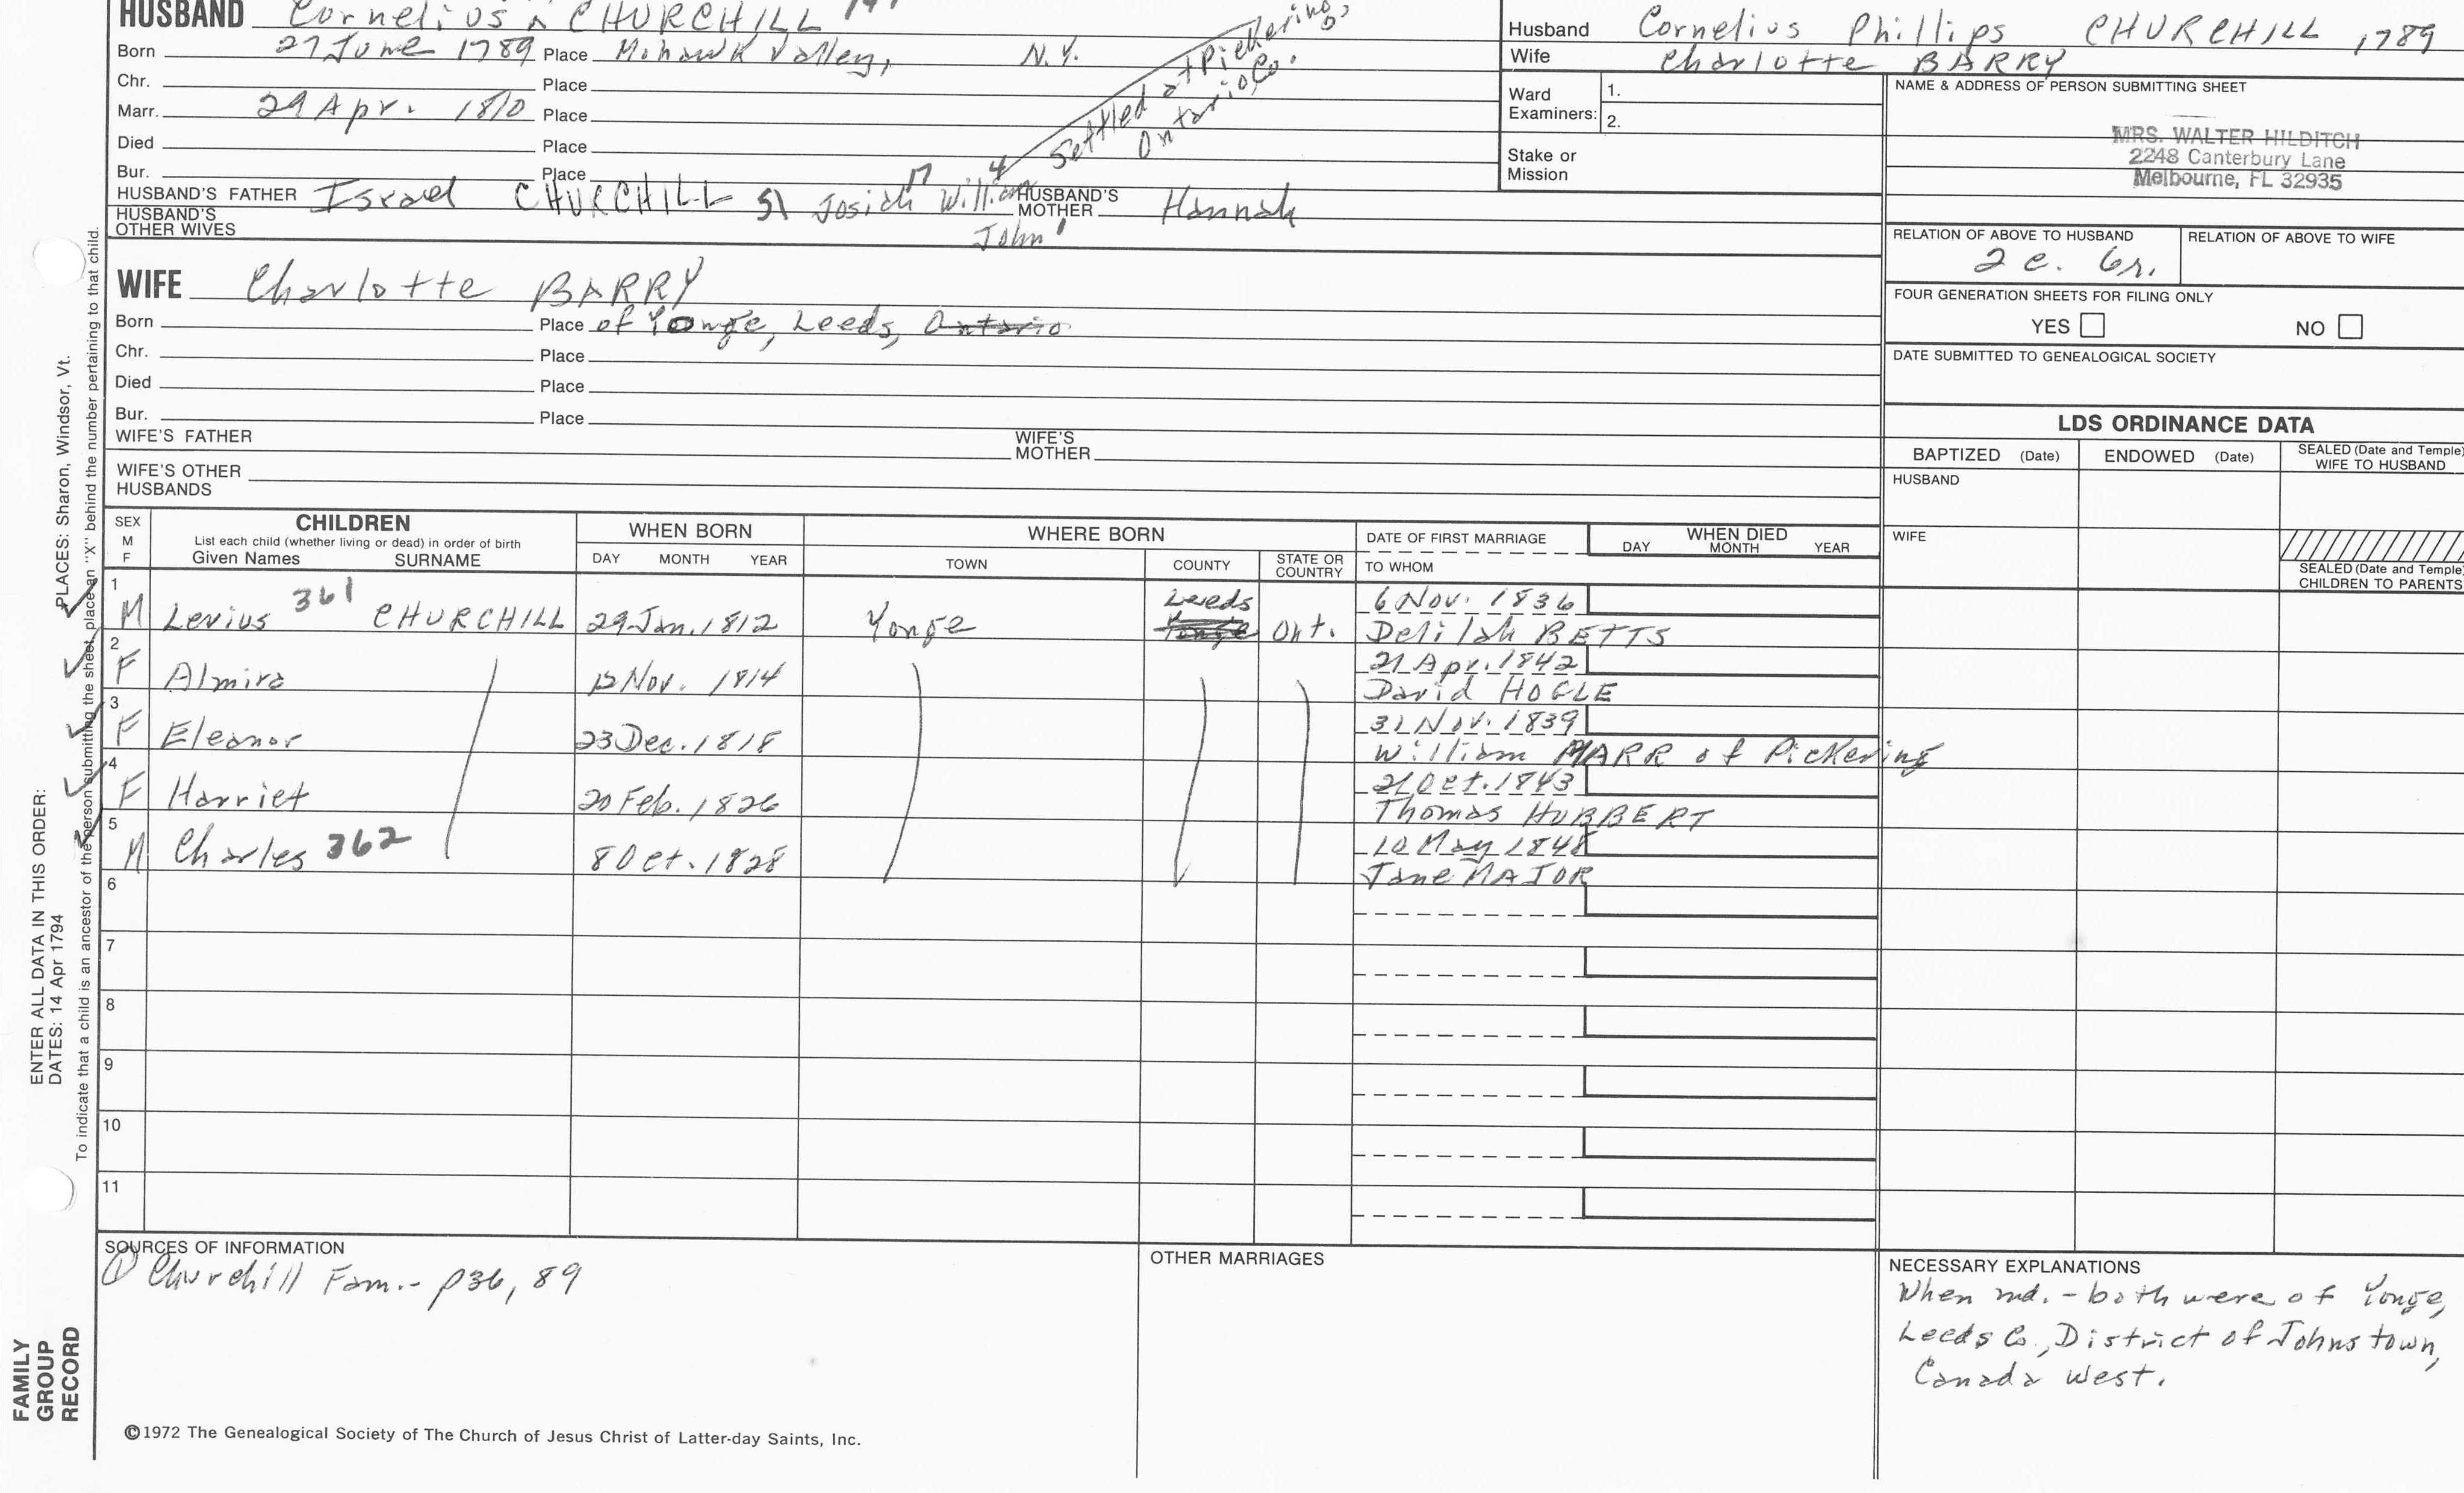 HUSBAND Cornelius CHURCHILL
Born 27 June 1789 Place Mohawk Valley, N.Y.
Chr. Place
Marr. 29 Apr. 1810 Place
Died Place
Bur. Place
Settled at Pickering,
Ontario Co.
HUSBAND'S FATHER Israel CHURCHILL 51 Josiah 17 William 4 John 1 HUSBAND'S MOTHER Hannah
HUSBAND'S OTHER WIVES
Husband Cornelius Phillips CHURCHILL 1789
Wife Charlotte BARRY
Ward Examiners: 1.
2.
Stake or Mission
NAME & ADDRESS OF PERSON SUBMITTING SHEET
MRS. WALTER HILDITCH
2248 Canterbury Lane
Melbourne, FL 32935
RELATION OF ABOVE TO HUSBAND RELATION OF ABOVE TO WIFE
2 c. 6r.
FOUR GENERATION SHEETS FOR FILING ONLY
YES NO
DATE SUBMITTED TO GENEALOGICAL SOCIETY
WIFE Charlotte BARRY
Born Place of Yonge, Leeds, Ontario
Chr. Place
Died Place
Bur. Place
WIFE'S FATHER WIFE'S MOTHER
WIFE'S OTHER HUSBANDS
LDS ORDINANCE DATA
BAPTIZED (Date) ENDOWED (Date) SEALED (Date and Temple) WIFE TO HUSBAND
HUSBAND
WIFE
SEALED (Date and Temple) CHILDREN TO PARENTS
SEX M F CHILDREN WHEN BORN WHERE BORN DATE OF FIRST MARRIAGE WHEN DIED
List each child (whether living or dead) in order of birth
Given Names SURNAME DAY MONTH YEAR TOWN COUNTY STATE OR COUNTRY TO WHOM DAY MONTH YEAR
1 M Levius 361 CHURCHILL 29 Jan. 1812 Yonge Leeds Yonge Ont. 6 Nov. 1836
Delilah BETTS
2 F Almira 12 Nov. 1814 21 Apr. 1842
David HOGLE
3 F Eleanor 23 Dec. 1818 31 Nov. 1839
William MARR of Pickering
4 F Harriet 20 Feb. 1826 21 Oct. 1843
Thomas HUBBERT
5 M Charles 362 8 Oct. 1828 10 May 1848
Jane MAJOR
6
7
8
9
10
11
SOURCES OF INFORMATION
① Churchill Fam. - p36, 89
OTHER MARRIAGES
NECESSARY EXPLANATIONS
When md. - both were of Yonge,
Leeds Co., District of Johnstown,
Canada West.
©1972 The Genealogical Society of The Church of Jesus Christ of Latter-day Saints, Inc.
FAMILY
GROUP
RECORD
ENTER ALL DATA IN THIS ORDER:
DATES: 14 Apr 1794
PLACES: Sharon, Windsor, Vt.
To indicate that a child is an ancestor of the person submitting the sheet, place an "X" behind the number pertaining to that child.